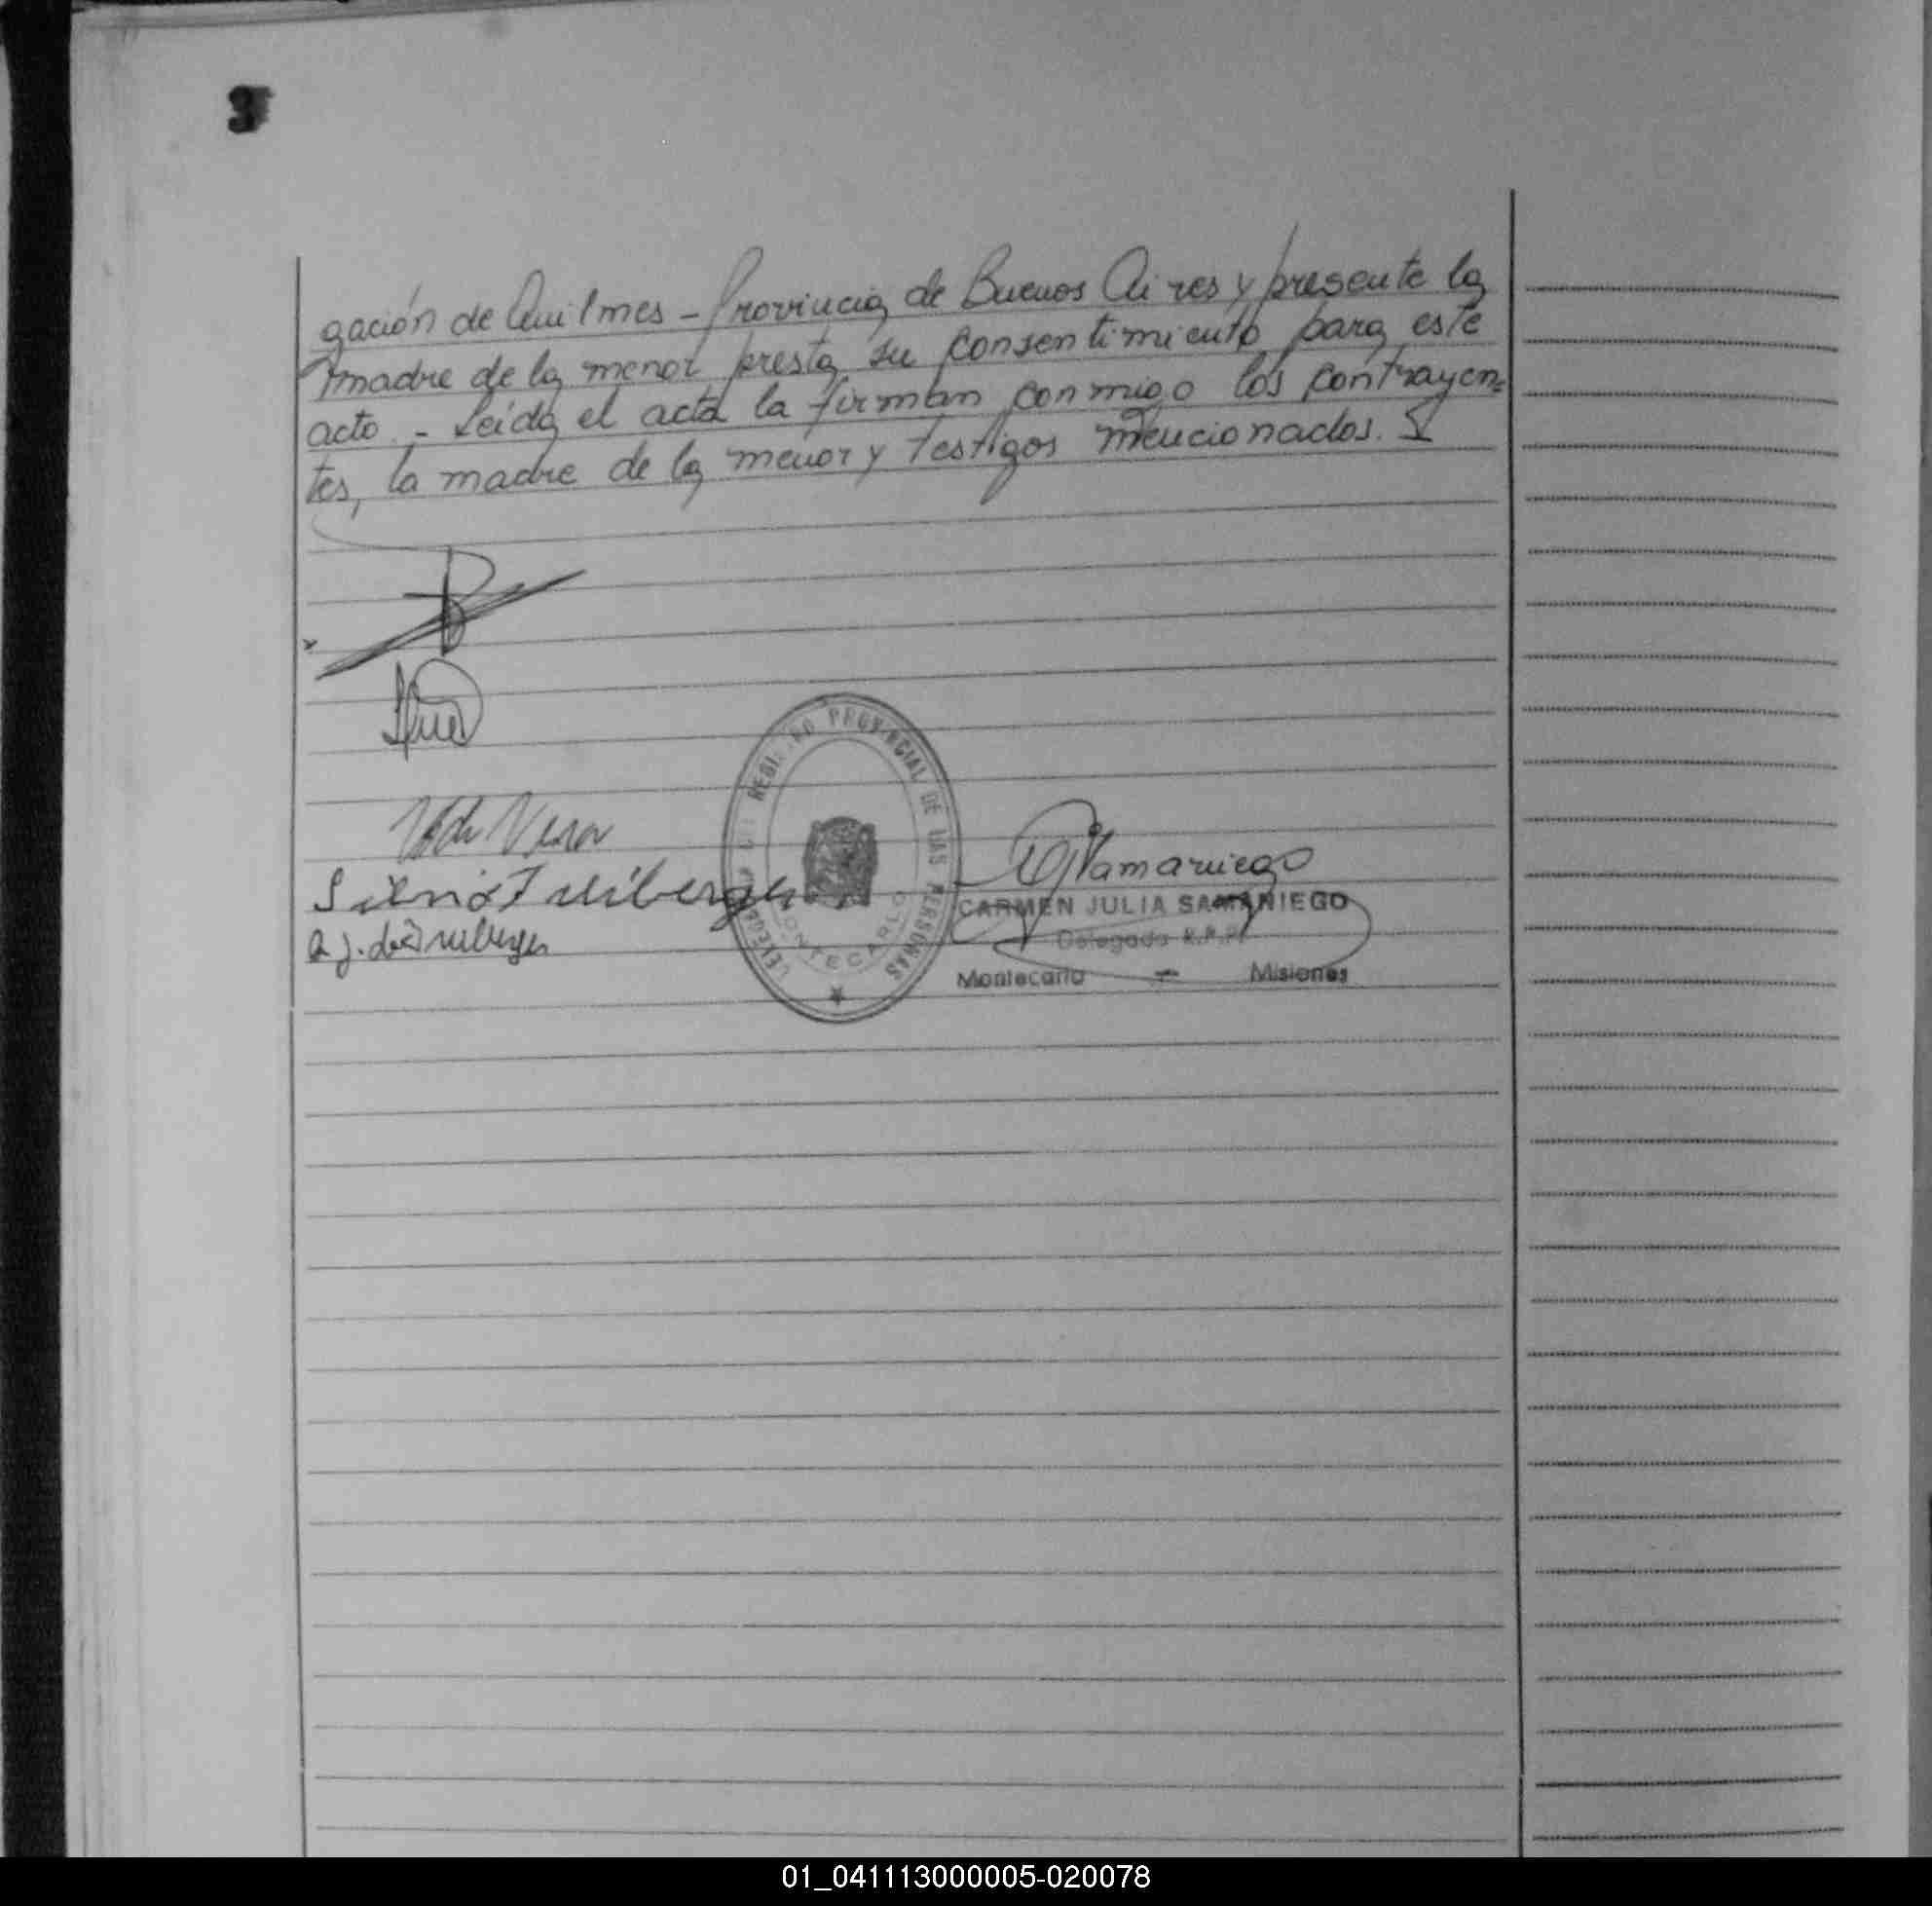 3
gación de Quilmes - Provincia de Buenos Aires y presente la
madre de la menor presta su consentimiento para este
acto. - Leída el acta la firman conmigo los contrayen=
tes, la madre de la menor y testigos mencionados.
Vera
REGISTRO PROVINCIAL DE LAS PERSONAS
MONTECARLO
CARMEN JULIA SAMANIEGO
Delegada R.P.P.
Montecarlo - Misiones
01_041113000005-020078